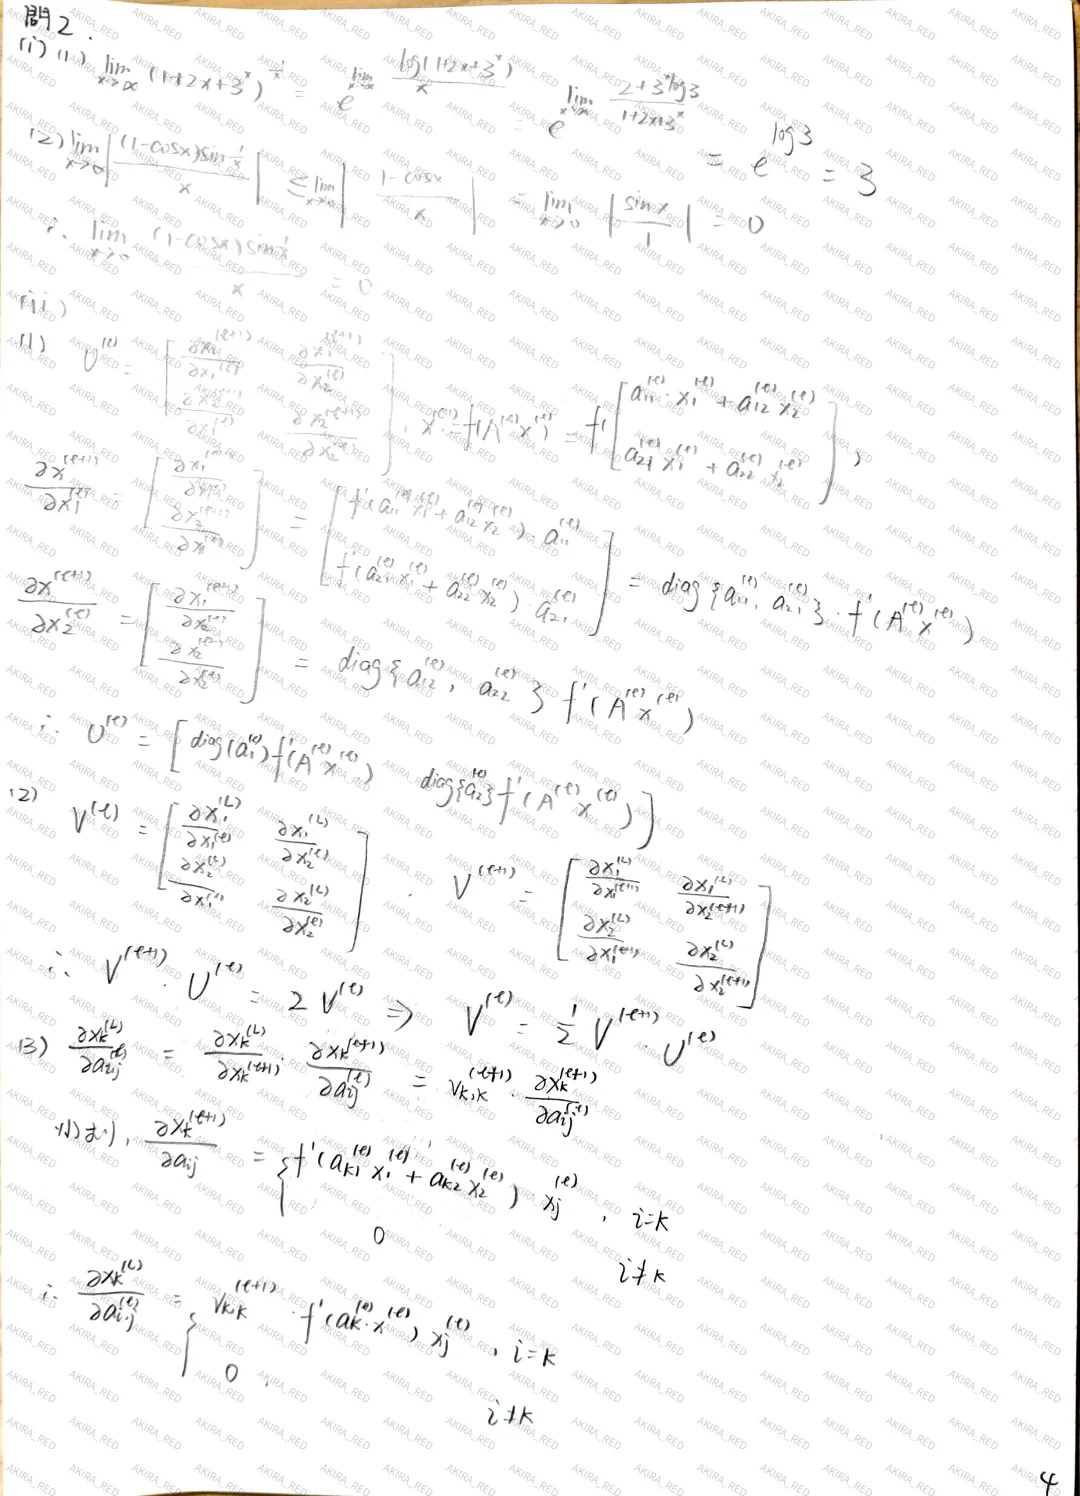 問2.
(i) (1) lim_{x→∞} (1+2x+3^x)^{1/x} = e^{lim_{x→∞} log(1+2x+3^x)/x} = e^{lim_{x→∞} (2+3^x log3)/(1+2x+3^x)} = e^{log3} = 3
(2) lim_{x→0} | (1-cosx)sin 1/x / x | ≤ lim_{x→0} | (1-cosx)/x | = lim_{x→0} | sinx/1 | = 0
∴ lim_{x→0} (1-cosx)sin 1/x / x = 0
(ii)
(1) U^{(ℓ)} = [ ∂x_1^{(ℓ+1)}/∂x_1^{(ℓ)} ∂x_1^{(ℓ+1)}/∂x_2^{(ℓ)} ; ∂x_2^{(ℓ+1)}/∂x_1^{(ℓ)} ∂x_2^{(ℓ+1)}/∂x_2^{(ℓ)} ], x^{(ℓ+1)} = f(A^{(ℓ)}x^{(ℓ)}) = f[ a_{11}^{(ℓ)}·x_1^{(ℓ)} + a_{12}^{(ℓ)}x_2^{(ℓ)} ; a_{21}^{(ℓ)}x_1^{(ℓ)} + a_{22}^{(ℓ)}x_2^{(ℓ)} ],
∂x^{(ℓ+1)}/∂x_1^{(ℓ)} = [ ∂x_1^{(ℓ+1)}/∂x_1^{(ℓ)} ; ∂x_2^{(ℓ+1)}/∂x_1^{(ℓ)} ] = [ f'(a_{11}^{(ℓ)}x_1^{(ℓ)} + a_{12}^{(ℓ)}x_2^{(ℓ)}) a_{11}^{(ℓ)} ; f'(a_{21}^{(ℓ)}x_1^{(ℓ)} + a_{22}^{(ℓ)}x_2^{(ℓ)}) a_{21}^{(ℓ)} ] = diag{a_{11}^{(ℓ)}, a_{21}^{(ℓ)}}·f'(A^{(ℓ)}x^{(ℓ)})
∂x^{(ℓ+1)}/∂x_2^{(ℓ)} = [ ∂x_1^{(ℓ+1)}/∂x_2^{(ℓ)} ; ∂x_2^{(ℓ+1)}/∂x_2^{(ℓ)} ] = diag{a_{12}^{(ℓ)}, a_{22}^{(ℓ)}} f'(A^{(ℓ)}x^{(ℓ)})
∴ U^{(ℓ)} = [ diag(a_1^{(ℓ)})f'(A^{(ℓ)}x^{(ℓ)}) diag{a_2^{(ℓ)}}f'(A^{(ℓ)}x^{(ℓ)}) ]
(2) V^{(ℓ)} = [ ∂x_1^{(L)}/∂x_1^{(ℓ)} ∂x_1^{(L)}/∂x_2^{(ℓ)} ; ∂x_2^{(L)}/∂x_1^{(ℓ)} ∂x_2^{(L)}/∂x_2^{(ℓ)} ] . V^{(ℓ+1)} = [ ∂x_1^{(L)}/∂x_1^{(ℓ+1)} ∂x_1^{(L)}/∂x_2^{(ℓ+1)} ; ∂x_2^{(L)}/∂x_1^{(ℓ+1)} ∂x_2^{(L)}/∂x_2^{(ℓ+1)} ]
∴ V^{(ℓ+1)}·U^{(ℓ)} = 2V^{(ℓ)} ⇒ V^{(ℓ)} = 1/2 V^{(ℓ+1)}·U^{(ℓ)}
(3) ∂x_k^{(L)}/∂a_{ij}^{(ℓ)} = ∂x_k^{(L)}/∂x_k^{(ℓ+1)} · ∂x_k^{(ℓ+1)}/∂a_{ij}^{(ℓ)} = v_{k,k}^{(ℓ+1)} · ∂x_k^{(ℓ+1)}/∂a_{ij}^{(ℓ)}
(1)より, ∂x_k^{(ℓ+1)}/∂a_{ij} = { f'(a_{k1}^{(ℓ)}x_1^{(ℓ)} + a_{k2}^{(ℓ)}x_2^{(ℓ)}) x_j^{(ℓ)}, i=k
0 i≠k
∴ ∂x_k^{(L)}/∂a_{i,j}^{(ℓ)} = { v_{k,k}^{(ℓ+1)}·f'(a_k^{(ℓ)}·x^{(ℓ)}) x_j^{(ℓ)}, i=k
0. i≠k
4
AKIRA_RED